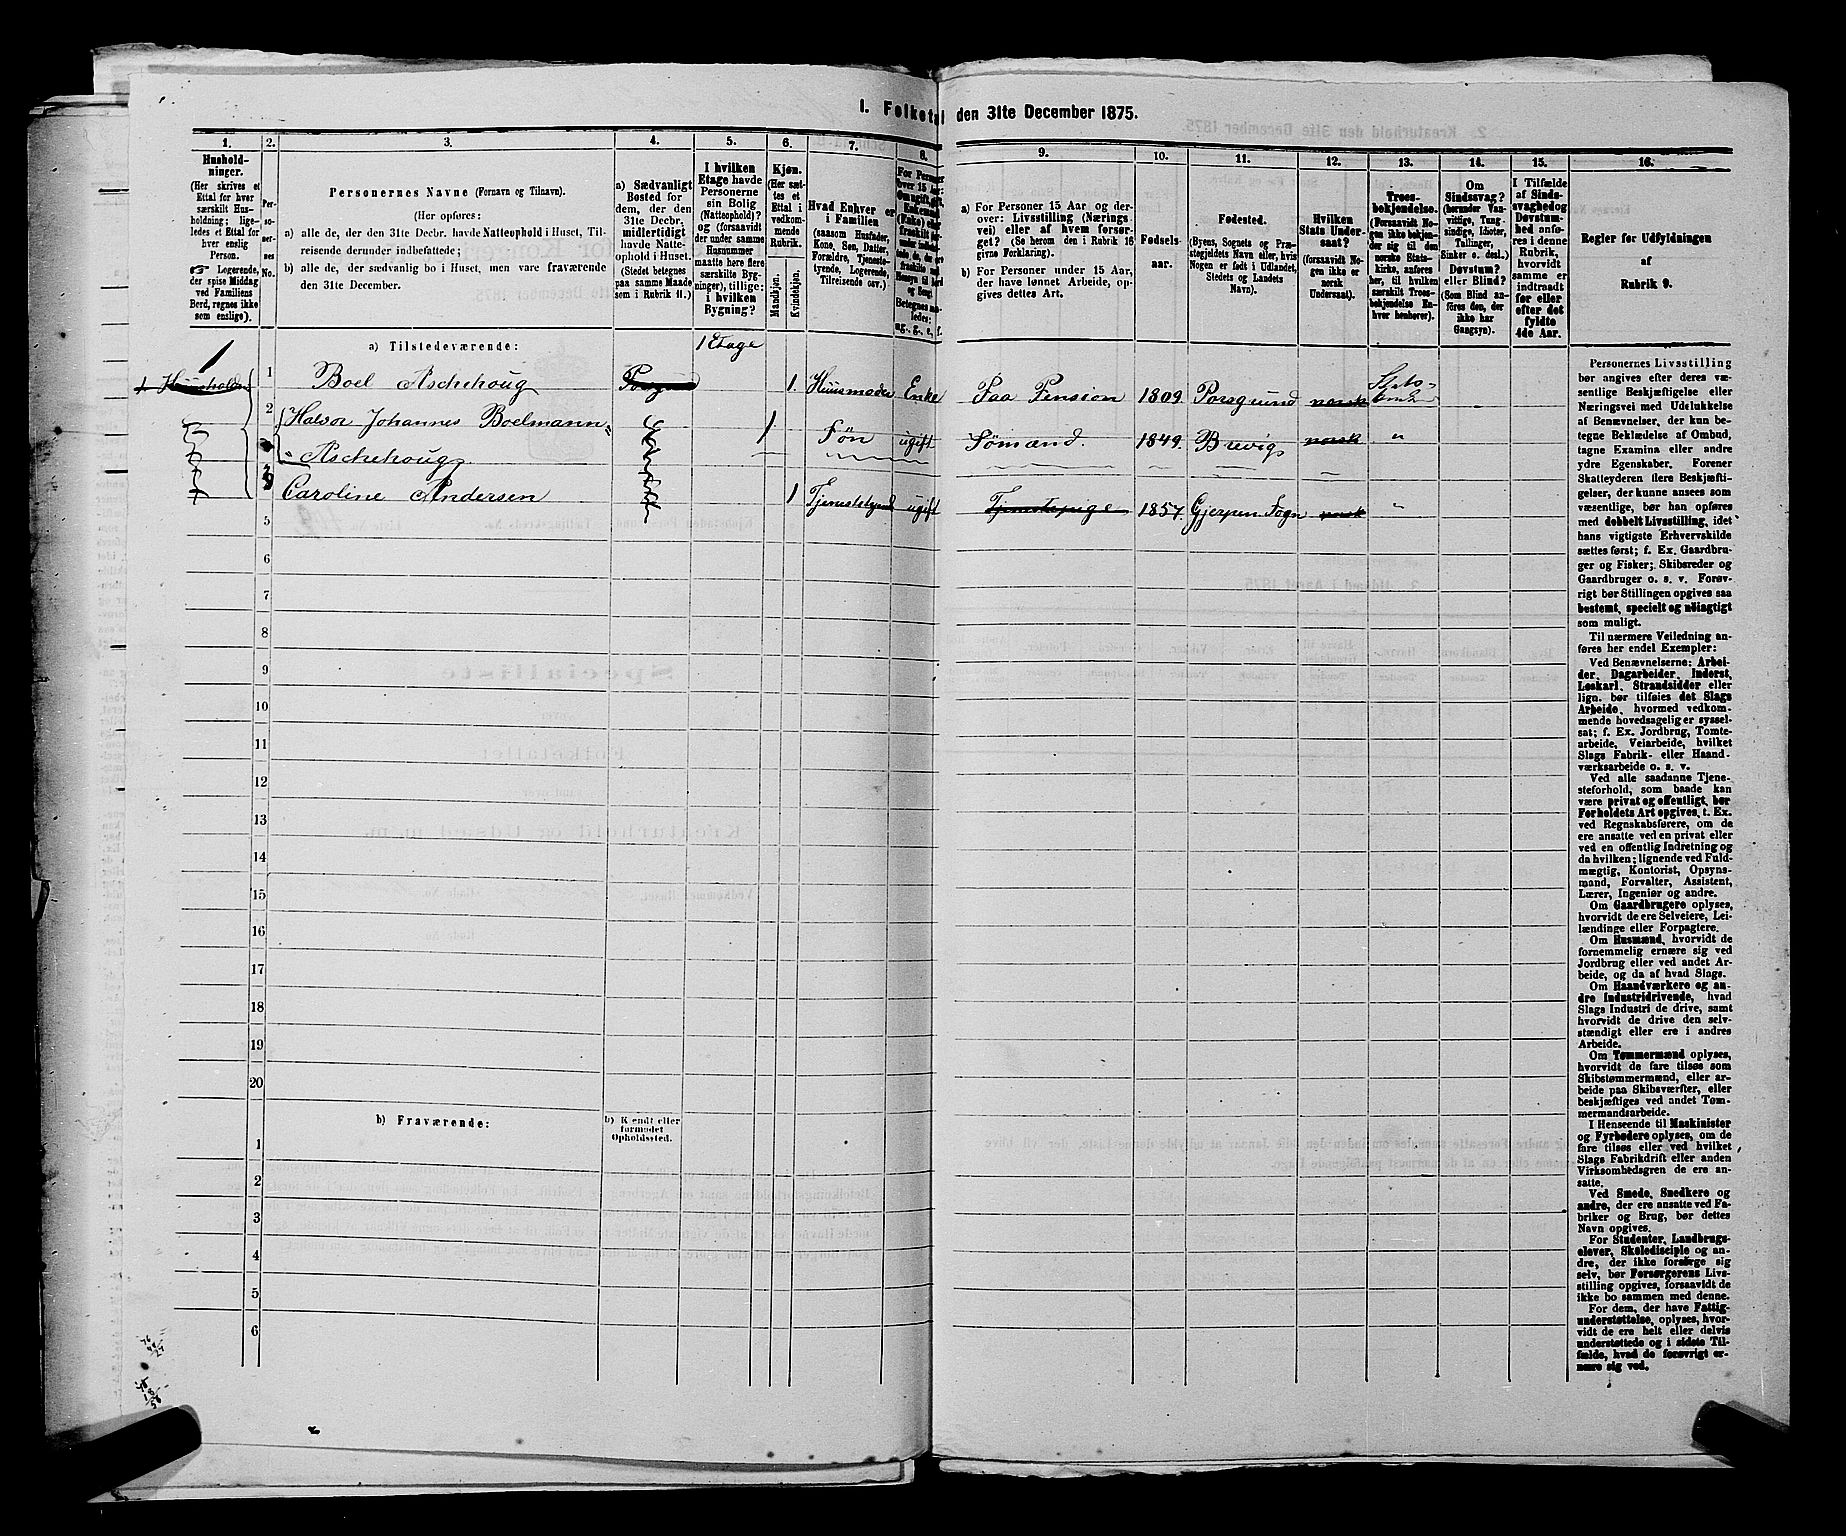 I. Folketal den 31te December 1875.
1.
Hushold-
ninger.
(Her skrives et
Ettal for hver
særskilt Hus-
holdning; lige-
ledes et Ettal for
hver enslig
Person.
Logerende,
der spise Middag
ved Familiens
Bord, regnes ikke
som enslige).
2.
Per-
so-
ner-
nes
No.
3.
Personernes Navne (Fornavn og Tilnavn).
(Her opføres:
a) alle de, der den 31te Decbr. havde Natteophold i Huset, Til-
reisende derunder indbefattede;
b) alle de, der sædvanlig bo i Huset, men vare fraværende
den 31te December.
4.
a) Sædvanligt
Bosted for
dem, der den
31te Decbr.
midlertidigt
havde Natte-
ophold i Huset.
(Stedet betegnes
paa samme Maade
som i Rubrik 11.)
5.
I hvilken
Etage havde
Personerne
sin Bolig
(Natteophold)?
og (forsaavidt
der under samme
Husnummer
maatte høre flere
særskilte Byg-
ninger), tillige:
i hvilken
Bygning?
6.
Kjøn.
(Her sæt-
tes et
Ettal i
vedkom-
mende
Rubrik.
Mandkjøn.
Kvindekjøn.
7.
Hvad Enhver er
i Familien
(saasom Husfader,
Kone, Søn, Datter,
Forældre, Tjeneste-
tyende, Logerende,
Tilreisende osv.)
8.
For Personer
over 15 Aar:
ug., g., e., f.
9.
a) For Personer 15 Aar og der-
over: Livsstilling (Nærings-
vei) eller af hvem forsør-
get? (Se herom den i Rubrik 16
givne Forklaring).
b) For Personer under 15 Aar,
der have lønnet Arbeide, op-
gives dettes Art.
10.
Fødsels-
aar.
11.
Fødested.
(Byens, Sognets og Præ-
stegjeldets Navn eller, hvis
Nogen er født i Udlandet,
Stedets og Landets
Navn).
12.
Hvilken
Stats Under-
saat?
(forsaavidt No-
gen ikke er
norsk
Undersaat).
13.
Troes-
bekjendelse.
(Forsaavidt No-
gen ikke bekjen-
der sig til den
norske Stats-
kirke, anføres
her, til hvilken
særskilt Troes-
bekjendelse En-
hver henhører).
14.
Om
Sindssvag?
(herunder Van-
vittige, Tung-
sindige, Idioter,
Tullinger,
Sinker o. desl.)
Døvstum?
eller Blind?
(Som Blind an-
føres den, der
ikke har
Gangsyn).
15.
I Tilfælde
af Sinds-
svaghed og
Døvstum-
hed anfø-
res i denne
Rubrik,
hvorvidt
samme er
indtraadt
før eller
efter det
fyldte
4de Aar.
16.
Regler for Udfyldningen
af
Rubrik 9.
a) Tilstedeværende:
1 Etage
1
1 Huusholdn.
1 Boel Aschehoug 1. Huusmoder Enke Paa Pension 1809. Porsgrund norsk Stats-
2 Halvor Johannes Boelmann= 1 Søn ugift Sømand. 1849. Brevig norsk "
Aschehoug
3 Caroline Andersen 1 Tjenestetyend ugift Tjenestepige 1857. Gjerpen Sogn norsk "
5
6
7
8
9
10
11
12
13
14
15
16
17
18
19
20
b) Fraværende:
b) Kjendt eller
formodet
Opholdssted.
1
2
3
4
5
6
Personernes Livsstilling
bør angives efter deres væ-
sentlige Beskjæftigelse eller
Næringsvei med Udelukkelse
af Benævnelser, der kun be-
tegne Beklædelse af Ombud,
tagne Examina eller andre
ydre Egenskaber. Forener
Skatteyderen flere Beskjæfti-
gelser, der kunne ansees som
væsentlige, bør han opgives
med dobbelt Livsstilling, idet
hans vigtigste Erhvervskilde
sættes først; f. Ex. Gaardbru-
ger og Fisker; Skibsreder og
Gaardbruger o. s. v. Forøv-
rigt bør Stillingen opgives saa
bestemt, specielt og nøiagtigt
som muligt.
Til nærmere Veiledning an-
føres her endel Exempler:
Ved Benævnelserne: Arbei-
der, Dagarbeider, Inderst,
Løskarl, Strandsidder eller
lign. bør tilføies det Slags
Arbeide, hvormed vedkom-
mende hovedsagelig er syssel-
sat; f. Ex. Jordbrug, Tomte-
arbeide, Veiarbeide, hvilket
Slags Fabrik- eller Haand-
værksarbeide o. s. v.
Ved alle saadanne Tjene-
steforhold, som baade kan
være privat og offentligt, bør
Forholdets Art opgives, t. Ex.
ved Regnskabsførere, om de
ere ansatte ved en privat eller
ved en offentlig Indretning og
da hvilken; lignende ved Fuld-
mægtig, Kontorist, Opsyns-
mand, Forvalter, Assistent,
Lærer, Ingeniør og andre.
Om Gaardbrugere oplyses,
hvorvidt de ere Selveiere, Lei-
lændinge eller Forpagtere.
Om Husmænd, hvorvidt de
fornemmelig ernære sig ved
Jordbrug eller ved andet Ar-
beide, og da af hvad Slags.
Om Haandværkere og an-
dre Industridrivende, hvad
Slags Industri de drive, samt
hvorvidt de drive den selv-
stændigt eller ere i andres
Arbeide.
Om Tømmermænd oplyses,
hvorvidt de fare tilsøs som
Skibstømmermænd, eller ar-
beide paa Skibsværfter, eller
beskjæftiges ved andet Tøm-
mermandsarbeide.
I Henseende til Maskinister
og Fyrbødere oplyses, om de
fare tilsøs eller ved hvilket
Slags Fabrikdrift eller anden
Virksomhedsgren de ere an-
satte.
Ved Smede, Snedkere og
andre, der ere ansatte ved Fa-
briker og Brug, bør dettes
Navn opgives.
For Studenter, Landbrugs-
elever, Skoledisciple og an-
dre, der ikke forsørge sig
selv, bør Forsørgerens Livs-
stilling opgives, forsaavidt de
ikke bo sammen med denne.
For dem, der have Fattig-
understøttelse, oplyses, hvor-
vidt de ere helt eller delvis
understøttede og i sidste Til-
fælde, hvad de forøvrigt er-
nære sig ved.